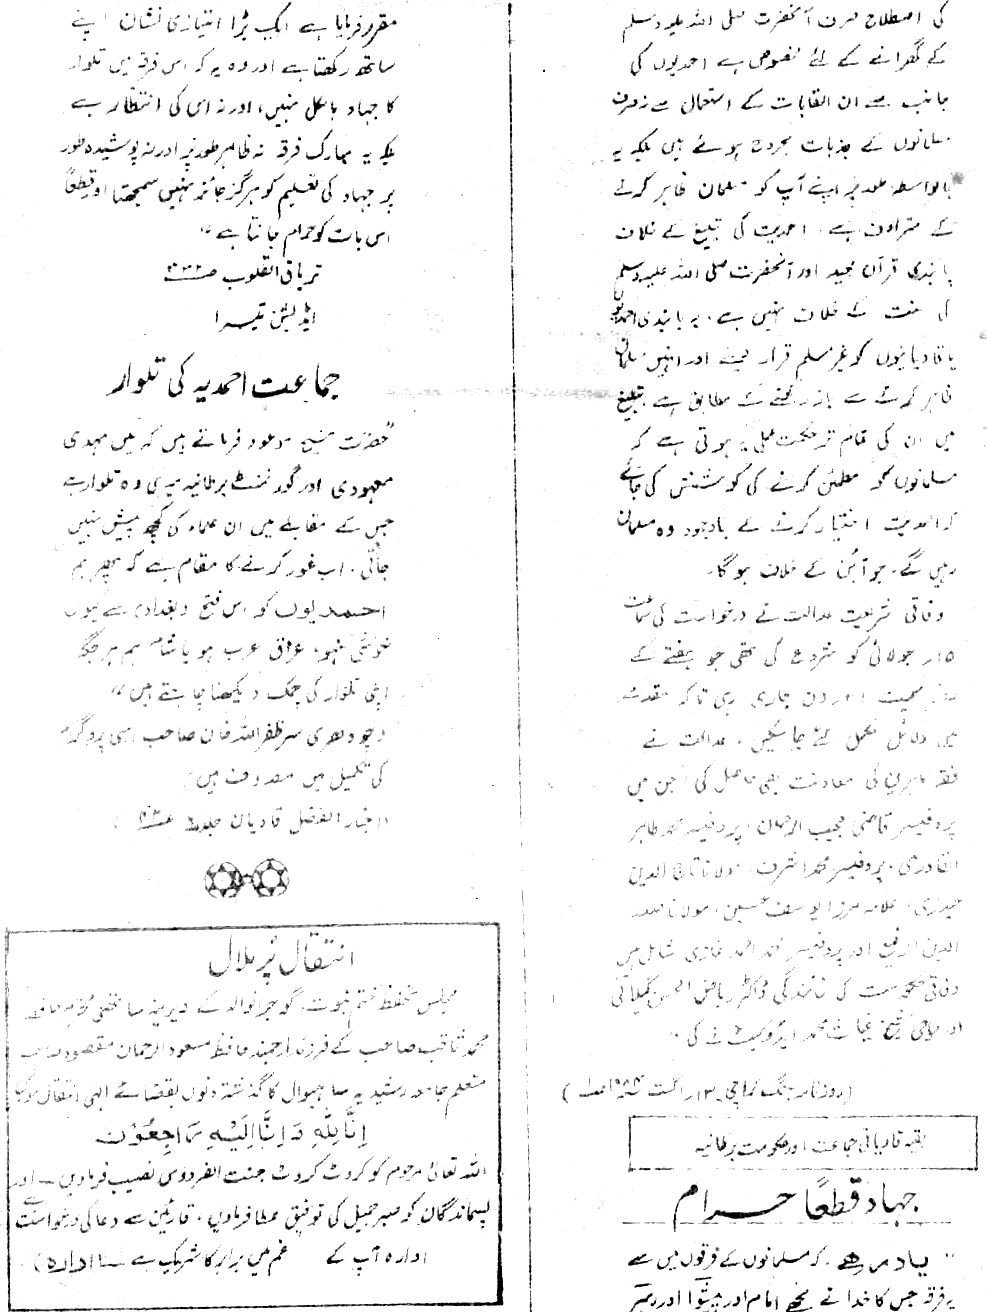 کی اصطلاح صرف آنحضرت صلی اللہ علیہ وسلم
کے گھرانے کے لئے مخصوص ہے احمدیوں کی
جانب سے ان القابات کے استعمال سے نہ صرف
مسلمانوں کے جذبات مجروح ہوئے ہیں بلکہ یہ
بالواسطہ طور پر اپنے آپ کو مسلمان ظاہر کرنے
کے مترادف ہے۔ احمدیت کی تبلیغ کے خلاف
پابندی قرآن مجید اور آنحضرت صلی اللہ علیہ وسلم
کی سنت کے خلاف نہیں ہے۔ یہ پابندی احمدیوں
یا قادیانیوں کو غیر مسلم قرار دینے اور انہیں مسلمان
ظاہر کرنے سے باز رکھنے کے مطابق ہے تبلیغ
میں ان کی تمام تر حکمت عملی یہ ہوتی ہے کہ
مسلمانوں کو مطمئن کرنے کی کوشش کی جائے
کہ احمدیت اختیار کرنے کے باوجود وہ مسلمان
رہیں گے۔ جو آئین کے خلاف ہو گا۔
وفاقی شریعت عدالت نے درخواست کی سماعت
۱۵ر جولائی کو شروع کی تھی جو ہفتے کے
سمیت دن جاری رہی تاکہ مقدمے
میں دلائل مکمل کئے جا سکیں۔ عدالت نے
فقہ ماہرین کی معاونت بھی حاصل کی جن میں
پروفیسر قاضی مجیب الرحمان، پروفیسر محمد طاہر
القادری، پروفیسر محمد اشرف، مولانا تاج الدین
حیدری، علامہ مرزا یوسف حسین، مولانا صدر
الدین الرفیع اور پروفیسر محمود احمد غازی شامل ہیں
وفاقی حکومت کی نمائندگی ڈاکٹر ریاض الحسن گیلانی
اور حاجی شیخ غیاث محمد ایڈووکیٹ نے کی"
(روزنامہ جنگ کراچی ۱۳ر اگست ۱۹۸۴ء ص۱)
بقیہ قادیانی جماعت اور حکومت برطانیہ
جہاد قطعاً حرام
"یاد رہے۔ کہ مسلمانوں کے فرقوں میں سے
یہ فرقہ جس کا خدا نے مجھے امام اور پیشوا اور رہبر
مقرر فرمایا ہے ایک بڑا امتیازی نشان اپنے
ساتھ رکھتا ہے اور وہ یہ کہ اس فرقہ میں تلوار
کا جہاد بالکل نہیں، اور نہ اس کی انتظار ہے
بلکہ یہ مبارک فرقہ نہ ظاہر طور پر اور نہ پوشیدہ طور
پر جہاد کی تعلیم کو ہرگز جائز نہیں سمجھتا اور قطعاً
اس بات کو حرام جانتا ہے"
تریاق القلوب ص۳۳۲
ایڈیشن تیسرا
جماعت احمدیہ کی تلوار
"حضرت مسیح موعود فرماتے ہیں کہ میں مہدی
معہودی اور گورنمنٹ برطانیہ میری وہ تلوار ہے
جس کے مقابلے میں ان علماء کی کچھ پیش نہیں
جاتی۔ اب غور کرنے کا مقام ہے کہ پھر ہم
احمدیوں کو اس فتح بغدادی سے کیوں
خوشی نہ ہو، عراق عرب ہو یا شام ہم ہر جگہ
اپنی تلوار کی چمک دیکھنا چاہتے ہیں"
(چوہدری سر ظفر اللہ خان صاحب اسی پروگرام
کی تکمیل میں مصروف ہیں)
(اخبار الفضل قادیان جلد۶
انتقال پُر ملال
مجلس تحفظ ختم نبوت، گوجرانوالہ کے دیرینہ ساتھی محترم حافظ
محمد ثاقب صاحب کے فرزند ارجمند حافظ مسعود الرحمان مقصود صاحب
متعلم جامعہ رشیدیہ ساہیوال کا گذشتہ دنوں بقضائے الٰہی انتقال ہو گیا
اِنَّا لِلّٰہِ وَ اِنَّا اِلَیْہِ رَاجِعُوْن
اللہ تعالیٰ مرحوم کو کروٹ کروٹ جنت الفردوس نصیب فرمادیں۔ اور
پسماندگان کو صبر جمیل کی توفیق عطا فرمادیں، قارئین سے دعا کی درخواست ہے
ادارہ آپ کے غم میں برابر کا شریک ہے (ادارہ)